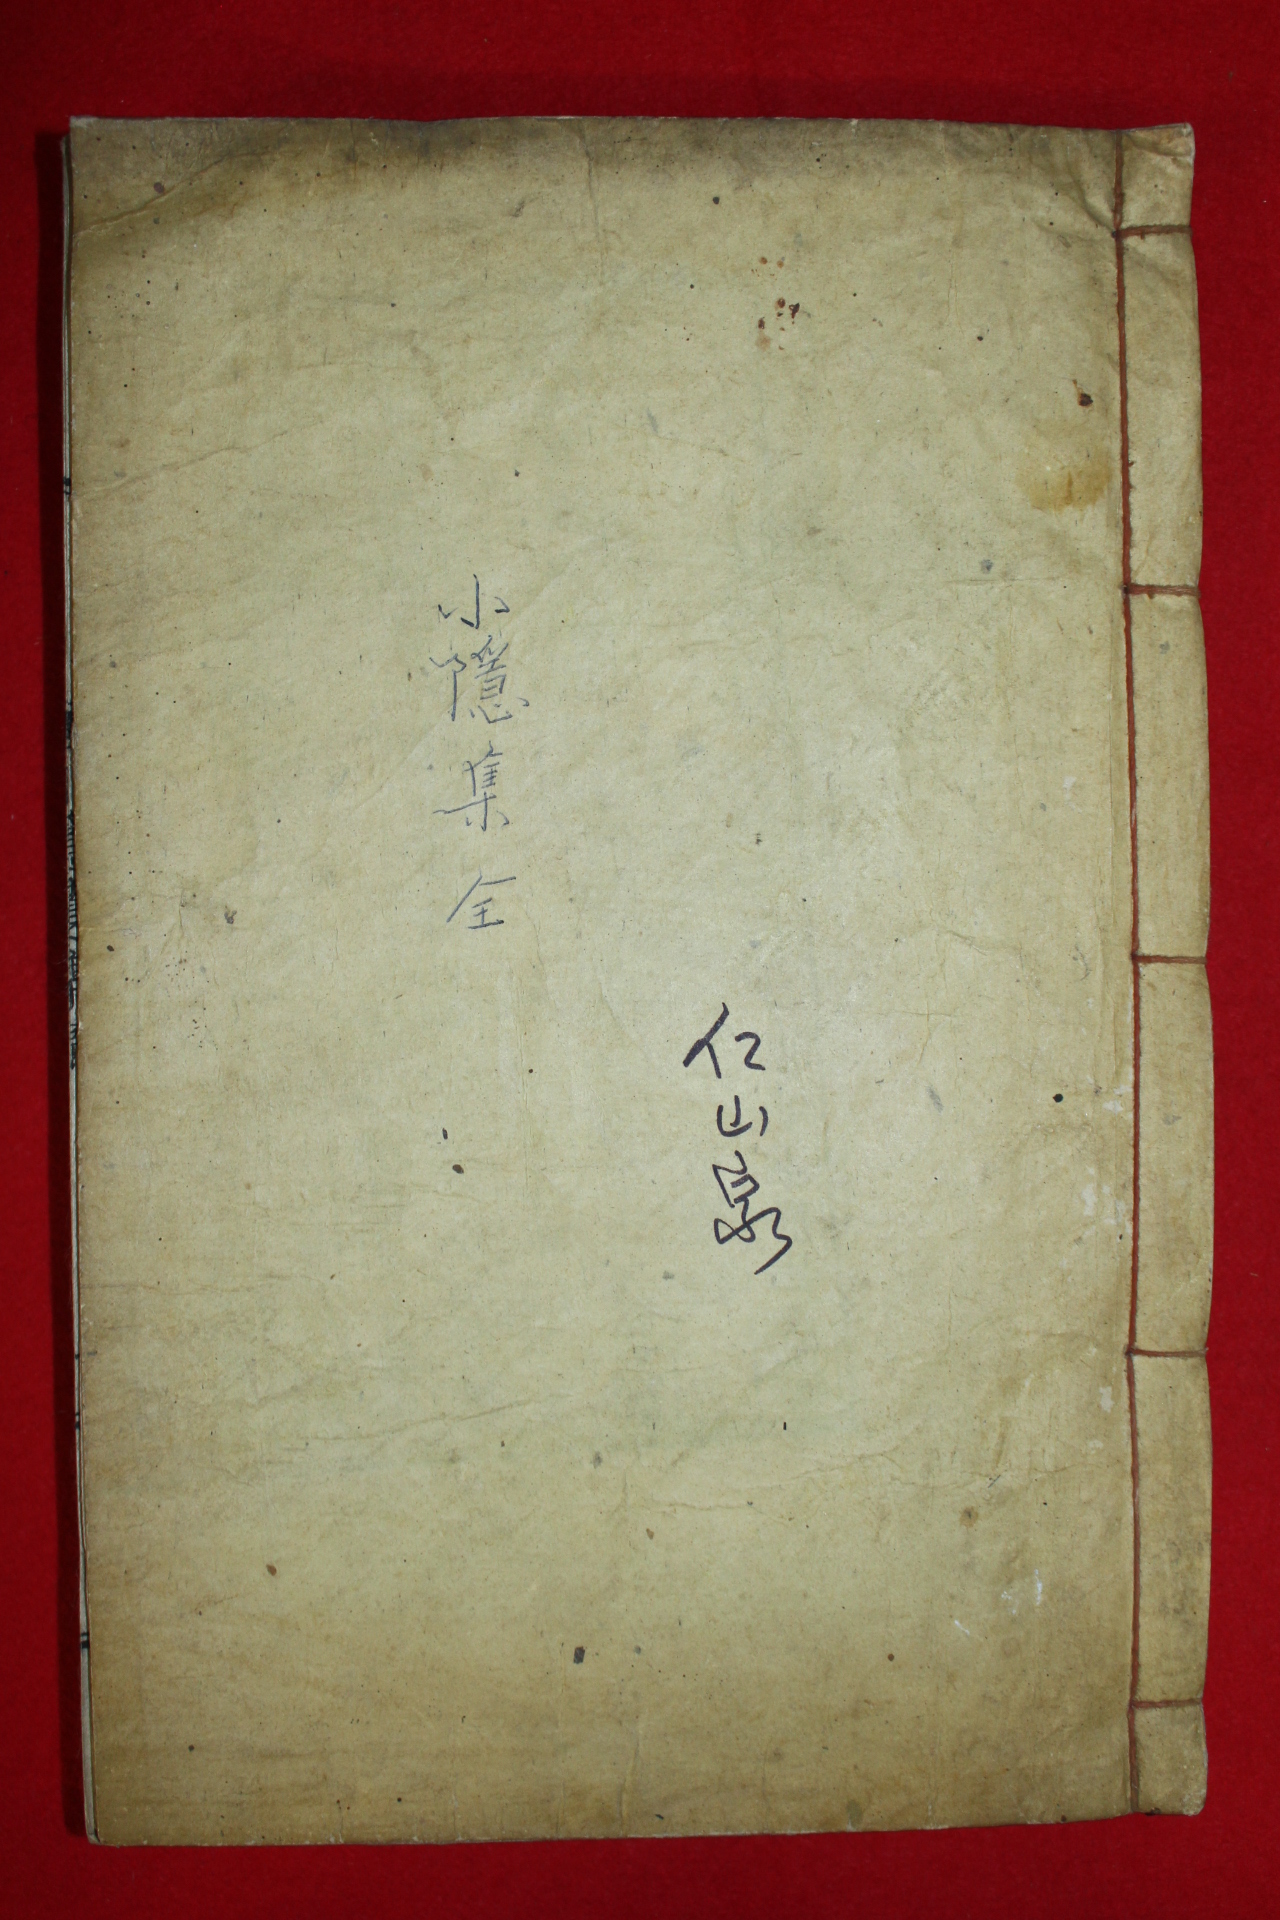 仁山泉
小隱集 全